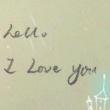 Hello.
I Love you